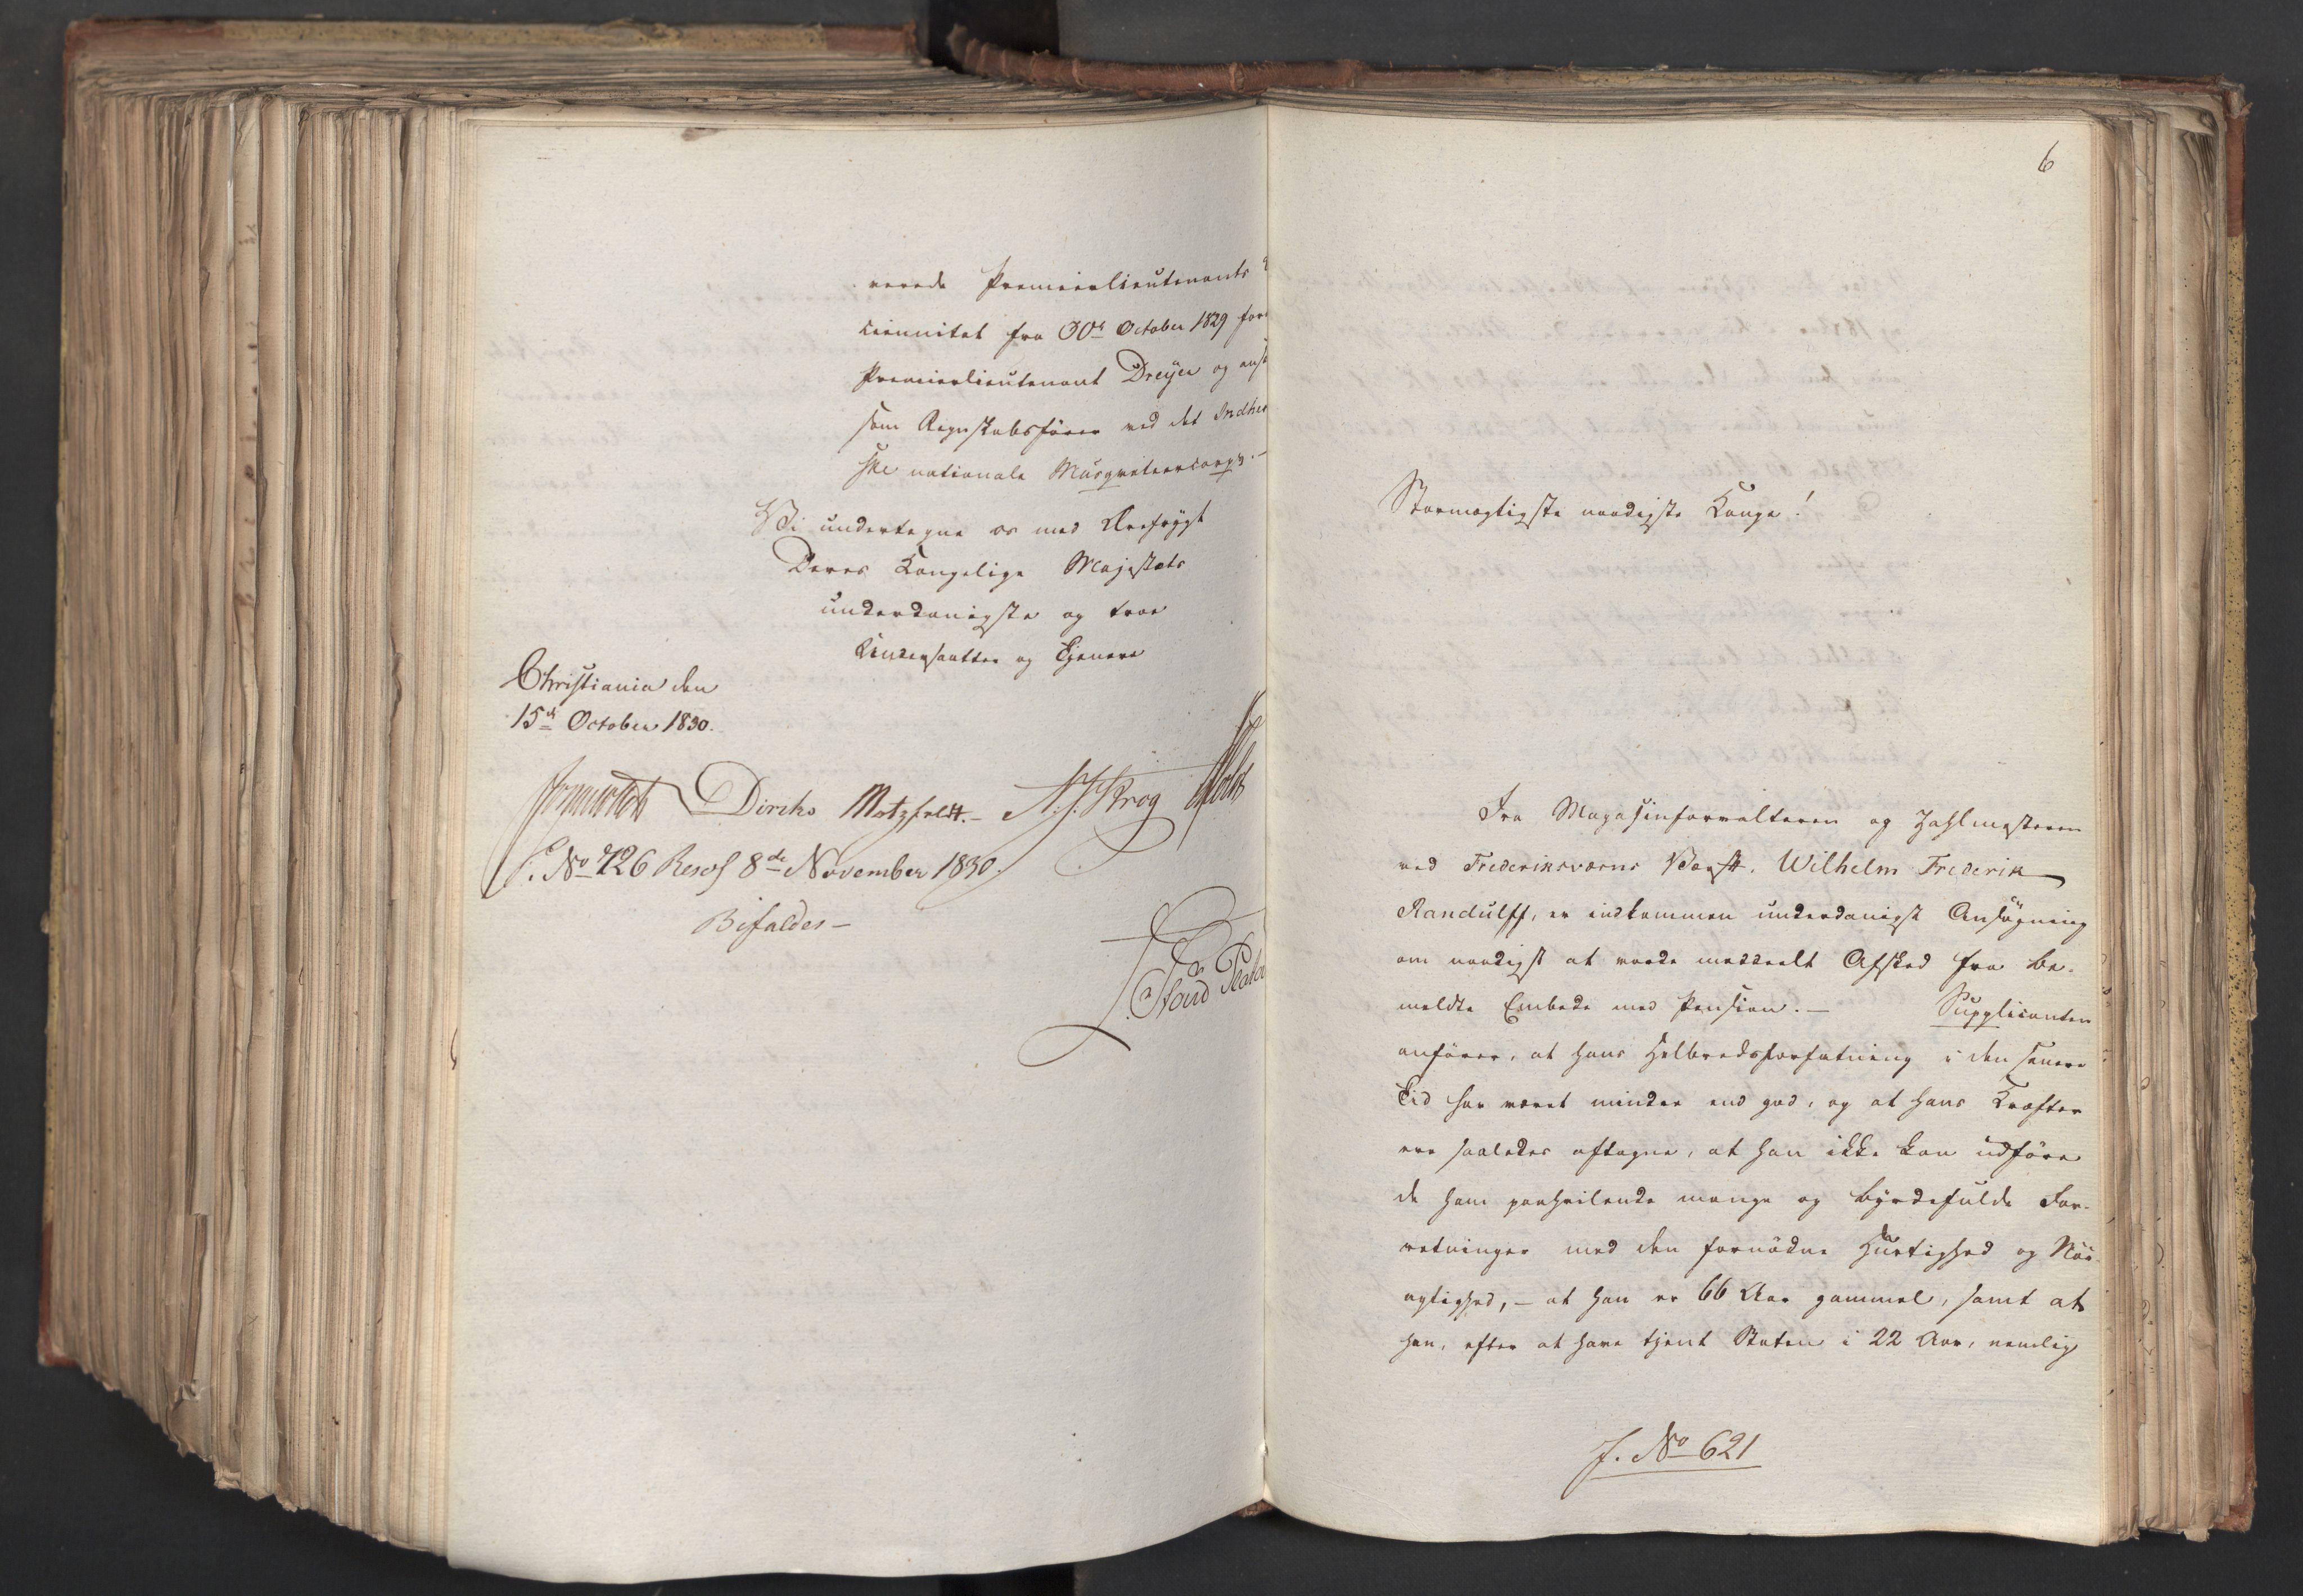 nerede Premierlieutenants
ciennitet fra 30te October 1829 for
Premierlieutenant Dreyer og ans
som Regnskabsfører ved det Indher
ske nationale Musqveteercorps.-
Vi undertegne os med Ærefrygt
Deres Kongelige Majestæts
underdanigste og troe
Undersaatter og Tjenere
Christiania den
15de October 1830.
Diriks Motzfeldt.- N. J. Krog Holst
P. No 726 Resol 8de November 1830.
Bifaldes-
6
Stormægtigste naadigste Konge!
Fra Magasinforvalteren og Zahlmesteren
ved Frederiksværns Værft, Wilhelm Frederik
Randulff, er indkommen underdanigst Ansøgning
om naadigst at vorde meddeelt Afsked fra be-
meldte Embede med Pension.- Supplicanten
anfører, at hans Helbredsforfatning i den senere
Tid har været mindre end god, og at hans Kræfter
ere saaledes aftagne, at han ikke kan udføre
de ham paahvilende mange og byrdefulde For-
retninger med den fornødne Hurtighed og Nøi-
agtighed,- at han er 66 Aar gammel, samt at
han, efter at have tjent Staten i 22 Aar, nemlig
J. No 621